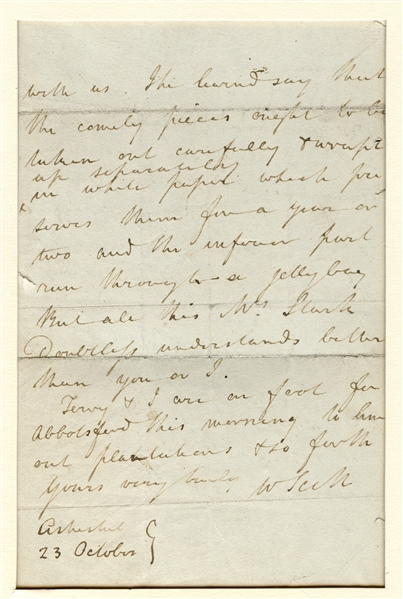 with us. The learned say that
the comely pieces ought to be
taken out carefully & wrapt
up separately
in white paper which pre
serves them for a year or
two and the inferior part
run through a jellybag
But all this Mrs. Stark
Doubtless understands better
than you or I.
Terry & I are on foot for
Abbotsford this morning to line
out plantations & so forth
Yours very truly W Scott
Ashestiel
23 October